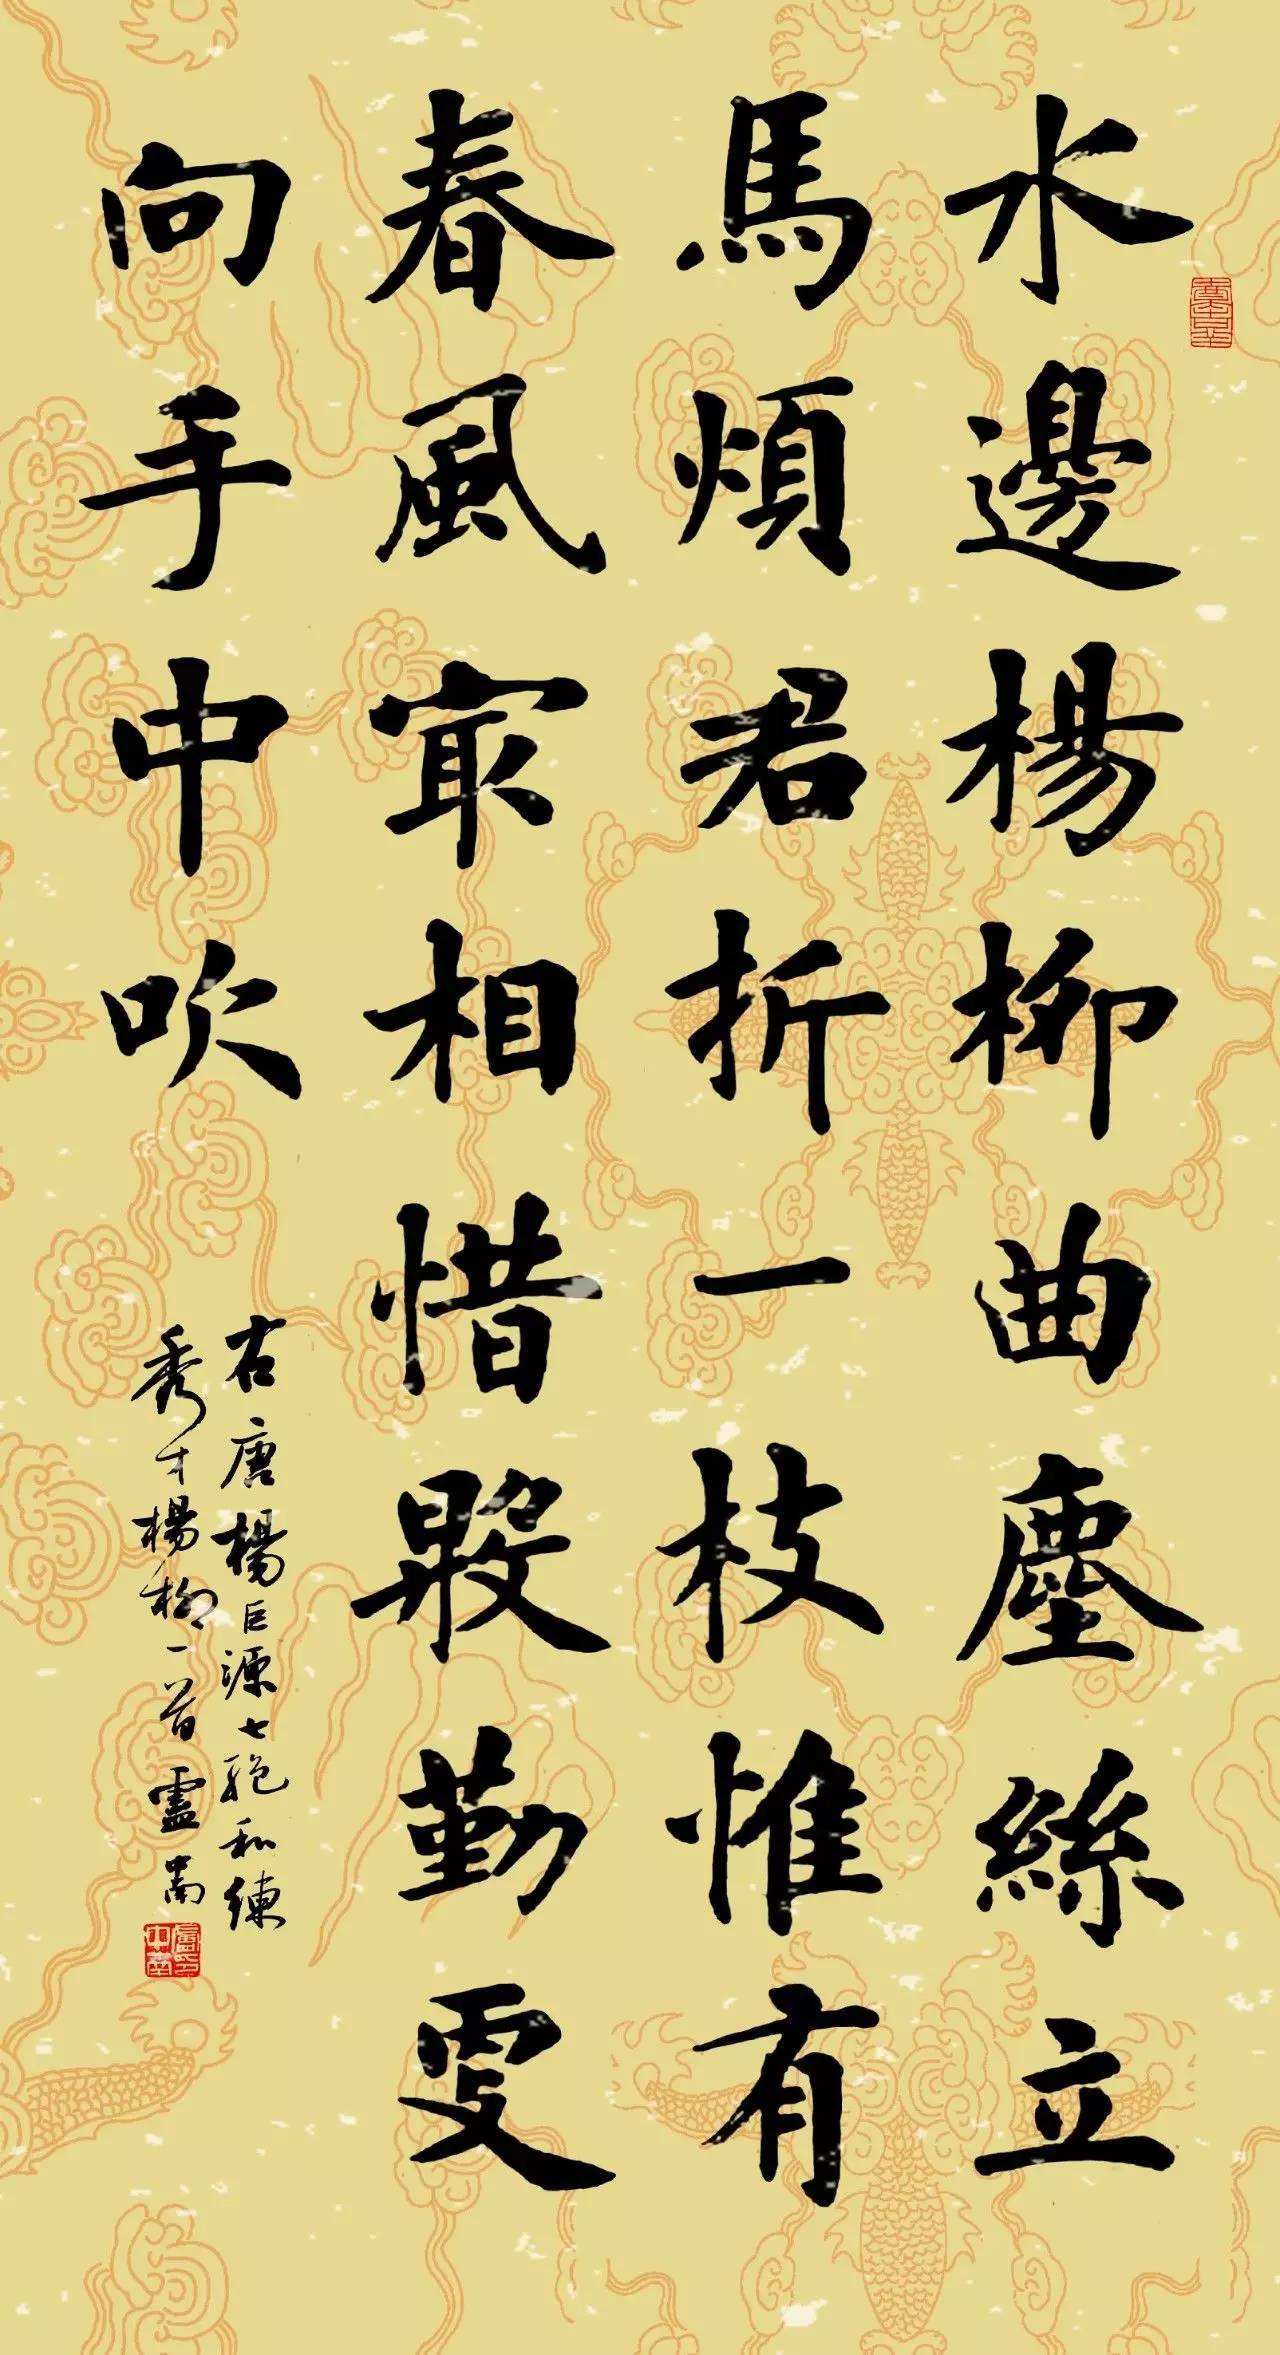 水邊楊柳曲塵絲立
馬煩君折一枝惟有
春風冣相惜殷勤更
向手中吹
右唐楊巨源七絕和練
秀才楊柳一首盧中南